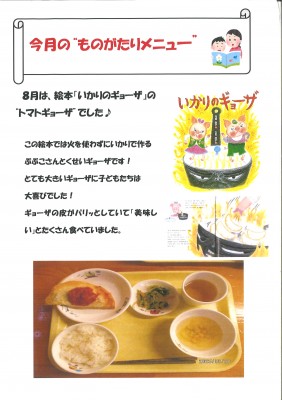 今月の“ものがたりメニュー”
8月は、絵本「いかりのギョーザ」の
“トマトギョーザ”でした♪
この絵本では火を使わずにいかりで作る
ぶぶこさんとくせいギョーザです!
とても大きいギョーザに子どもたちは
大喜びでした!
ギョーザの皮がパリッとしていて「美味し
い」とたくさん食べていました。
いかりのギョーザ